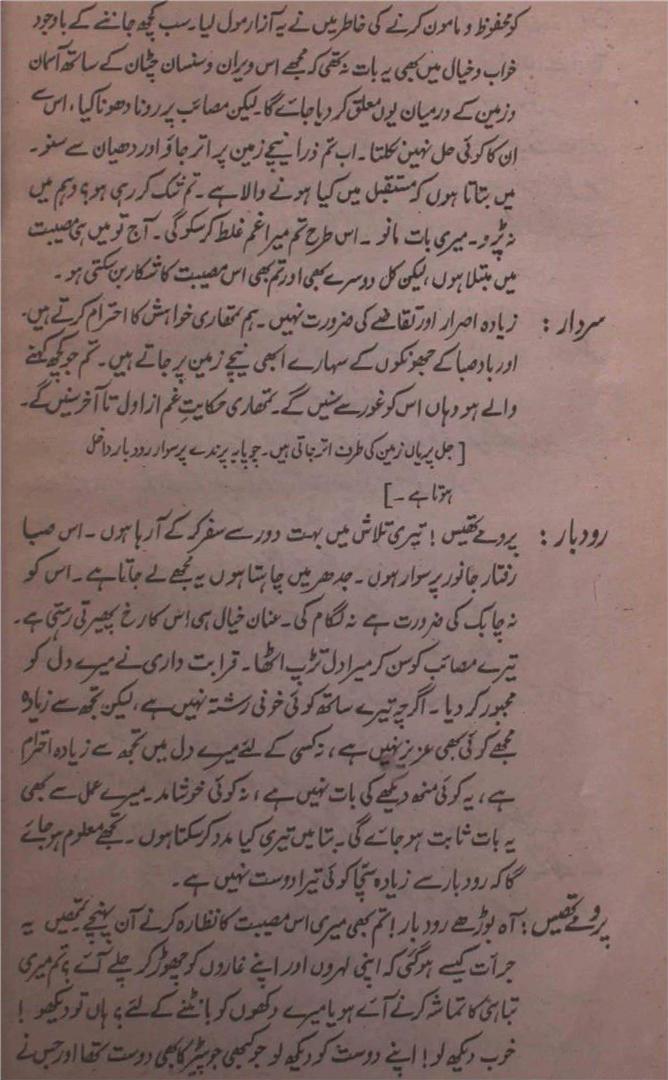 کو محفوظ و مامون کرنے کی خاطر میں نے یہ آزار مول لیا۔ سب کچھ جاننے کے باوجود
خواب و خیال میں بھی یہ بات نہ تھی کہ مجھے اس ویران و سنسان چٹان کے ساتھ آسمان
و زمین کے درمیان یوں معلق کر دیا جائے گا۔ لیکن مصائب پر رونا دھونا کیا، اس سے
ان کا کوئی حل نہیں نکلتا۔ اب تم ذرا نیچے زمین پر اتر جاؤ اور دھیان سے سنو۔
میں بتاتا ہوں کہ مستقبل میں کیا ہونے والا ہے۔ تم شک کر رہی ہو؟ وہم میں
نہ پڑو۔ میری بات مانو۔ اس طرح تم میرا غم غلط کر سکو گی۔ آج تو میں ہی مصیبت
میں مبتلا ہوں، لیکن کل دوسرے بھی اور تم بھی اس مصیبت کا شکار بن سکتی ہو۔
سردار : زیادہ اصرار اور تقاضے کی ضرورت نہیں۔ ہم تمھاری خواہش کا احترام کرتے ہیں۔
اور باد صبا کے جھونکوں کے سہارے ابھی نیچے زمین پر جاتے ہیں۔ تم جو کچھ کہنے
والے ہو وہاں اس کو غور سے سنیں گے۔ تمھاری حکایتِ غم از اول تا آخر سنیں گے۔
[ جل پریاں زمین کی طرف اتر جاتی ہیں۔ چوپایہ پرندے پر سوار رودبار داخل
ہوتا ہے۔ ]
رودبار : پرومے تھیس! تیری تلاش میں بہت دور سے سفر کر کے آ رہا ہوں۔ اس صبا
رفتار جانور پر سوار ہوں۔ جدھر میں چاہتا ہوں یہ مجھے لے جاتا ہے۔ اس کو
نہ چابک کی ضرورت ہے نہ لگام کی۔ عنان خیال ہی اس کا رخ پھیرتی رہتی ہے۔
تیرے مصائب کو سن کر میرا دل تڑپ اٹھا۔ قرابت داری نے میرے دل کو
مجبور کر دیا۔ اگرچہ تیرے ساتھ کوئی خونی رشتہ نہیں ہے، لیکن تجھ سے زیادہ
مجھے کوئی بھی عزیز نہیں ہے، نہ کسی کے لئے میرے دل میں تجھ سے زیادہ احترام
ہے، یہ کوئی منھ دیکھے کی بات نہیں ہے، نہ کوئی خوشامد۔ میرے عمل سے بھی
یہ بات ثابت ہو جائے گی۔ بتا میں تیری کیا مدد کر سکتا ہوں۔ تجھے معلوم ہو جائے
گا کہ رودبار سے زیادہ سچا کوئی تیرا دوست نہیں ہے۔
پرومے تھیس : آہ بوڑھے رودبار! تم بھی میری اس مصیبت کا نظارہ کرنے آن پہنچے تمھیں یہ
جرأت کیسے ہو گئی کہ اپنی لہروں اور اپنے غاروں کو چھوڑ کر چلے آئے؟ تم میری
تباہی کا تماشہ کرنے آئے ہو یا میرے دکھوں کو بانٹنے کے لئے؟ ہاں تو دیکھو!
خوب دیکھ لو! اپنے دوست کو دیکھ لو جو کبھی جوپیٹر کا بھی دوست تھا اور جس نے